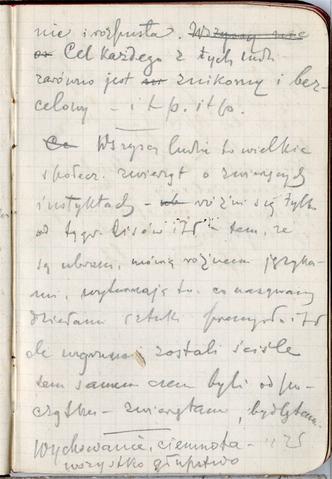 nie i rozpusta. Wszyscy
Cel każdego z tych ludzi
zarówno jest znikomy i bez-
celowy – i t p. i t p.
Wszyscy ludzie to wielkie
społecz. zwierząt o
instyktach – różni się tylko
od tygr. lisów itd tem, że
są ubrani, mówią różnemi języka-
mi, wytwarzają to co nazywamy
dziełami sztuki przemysłu itd
ale zostali ściśle
tem samem czem byli od po-
czątku – zwierzętami, bydlętami
Wychowanie, ciemnota –
wszystko głupstwo